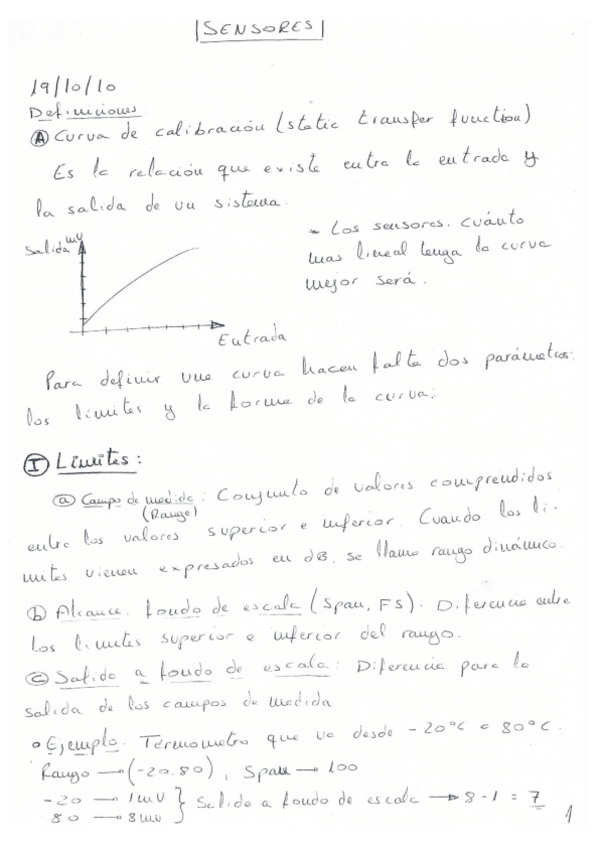 SENSORES
19/10/10
Definiciones
Ⓐ Curva de calibración (static transfer function)
Es la relación que existe entre la entrada y
la salida de un sistema.
Salida mV
Entrada
* Los sensores. cuánto
mas lineal tenga la curva
mejor será.
Para definir una curva hacen falta dos parámetros:
los límites y la forma de la curva:
Ⓘ Límites:
ⓐ Campo de medida: Conjunto de valores comprendidos
(Range)
entre los valores superior e inferior. Cuando los li-
mites vienen expresados en dB, se llama rango dinámico.
ⓑ Alcance. fondo de escala (Span, FS). Diferencia entre
los limites superior e inferior del rango.
ⓒ Salida a fondo de escala: Diferencia para la
salida de los campos de medida
• Ejemplo: Termómetro que va desde -20°C a 80°C.
Rango → (-20.80), Span → 100
-20 → 1mV } Salida a fondo de escala → 8-1 = 7
80 → 8mV
1